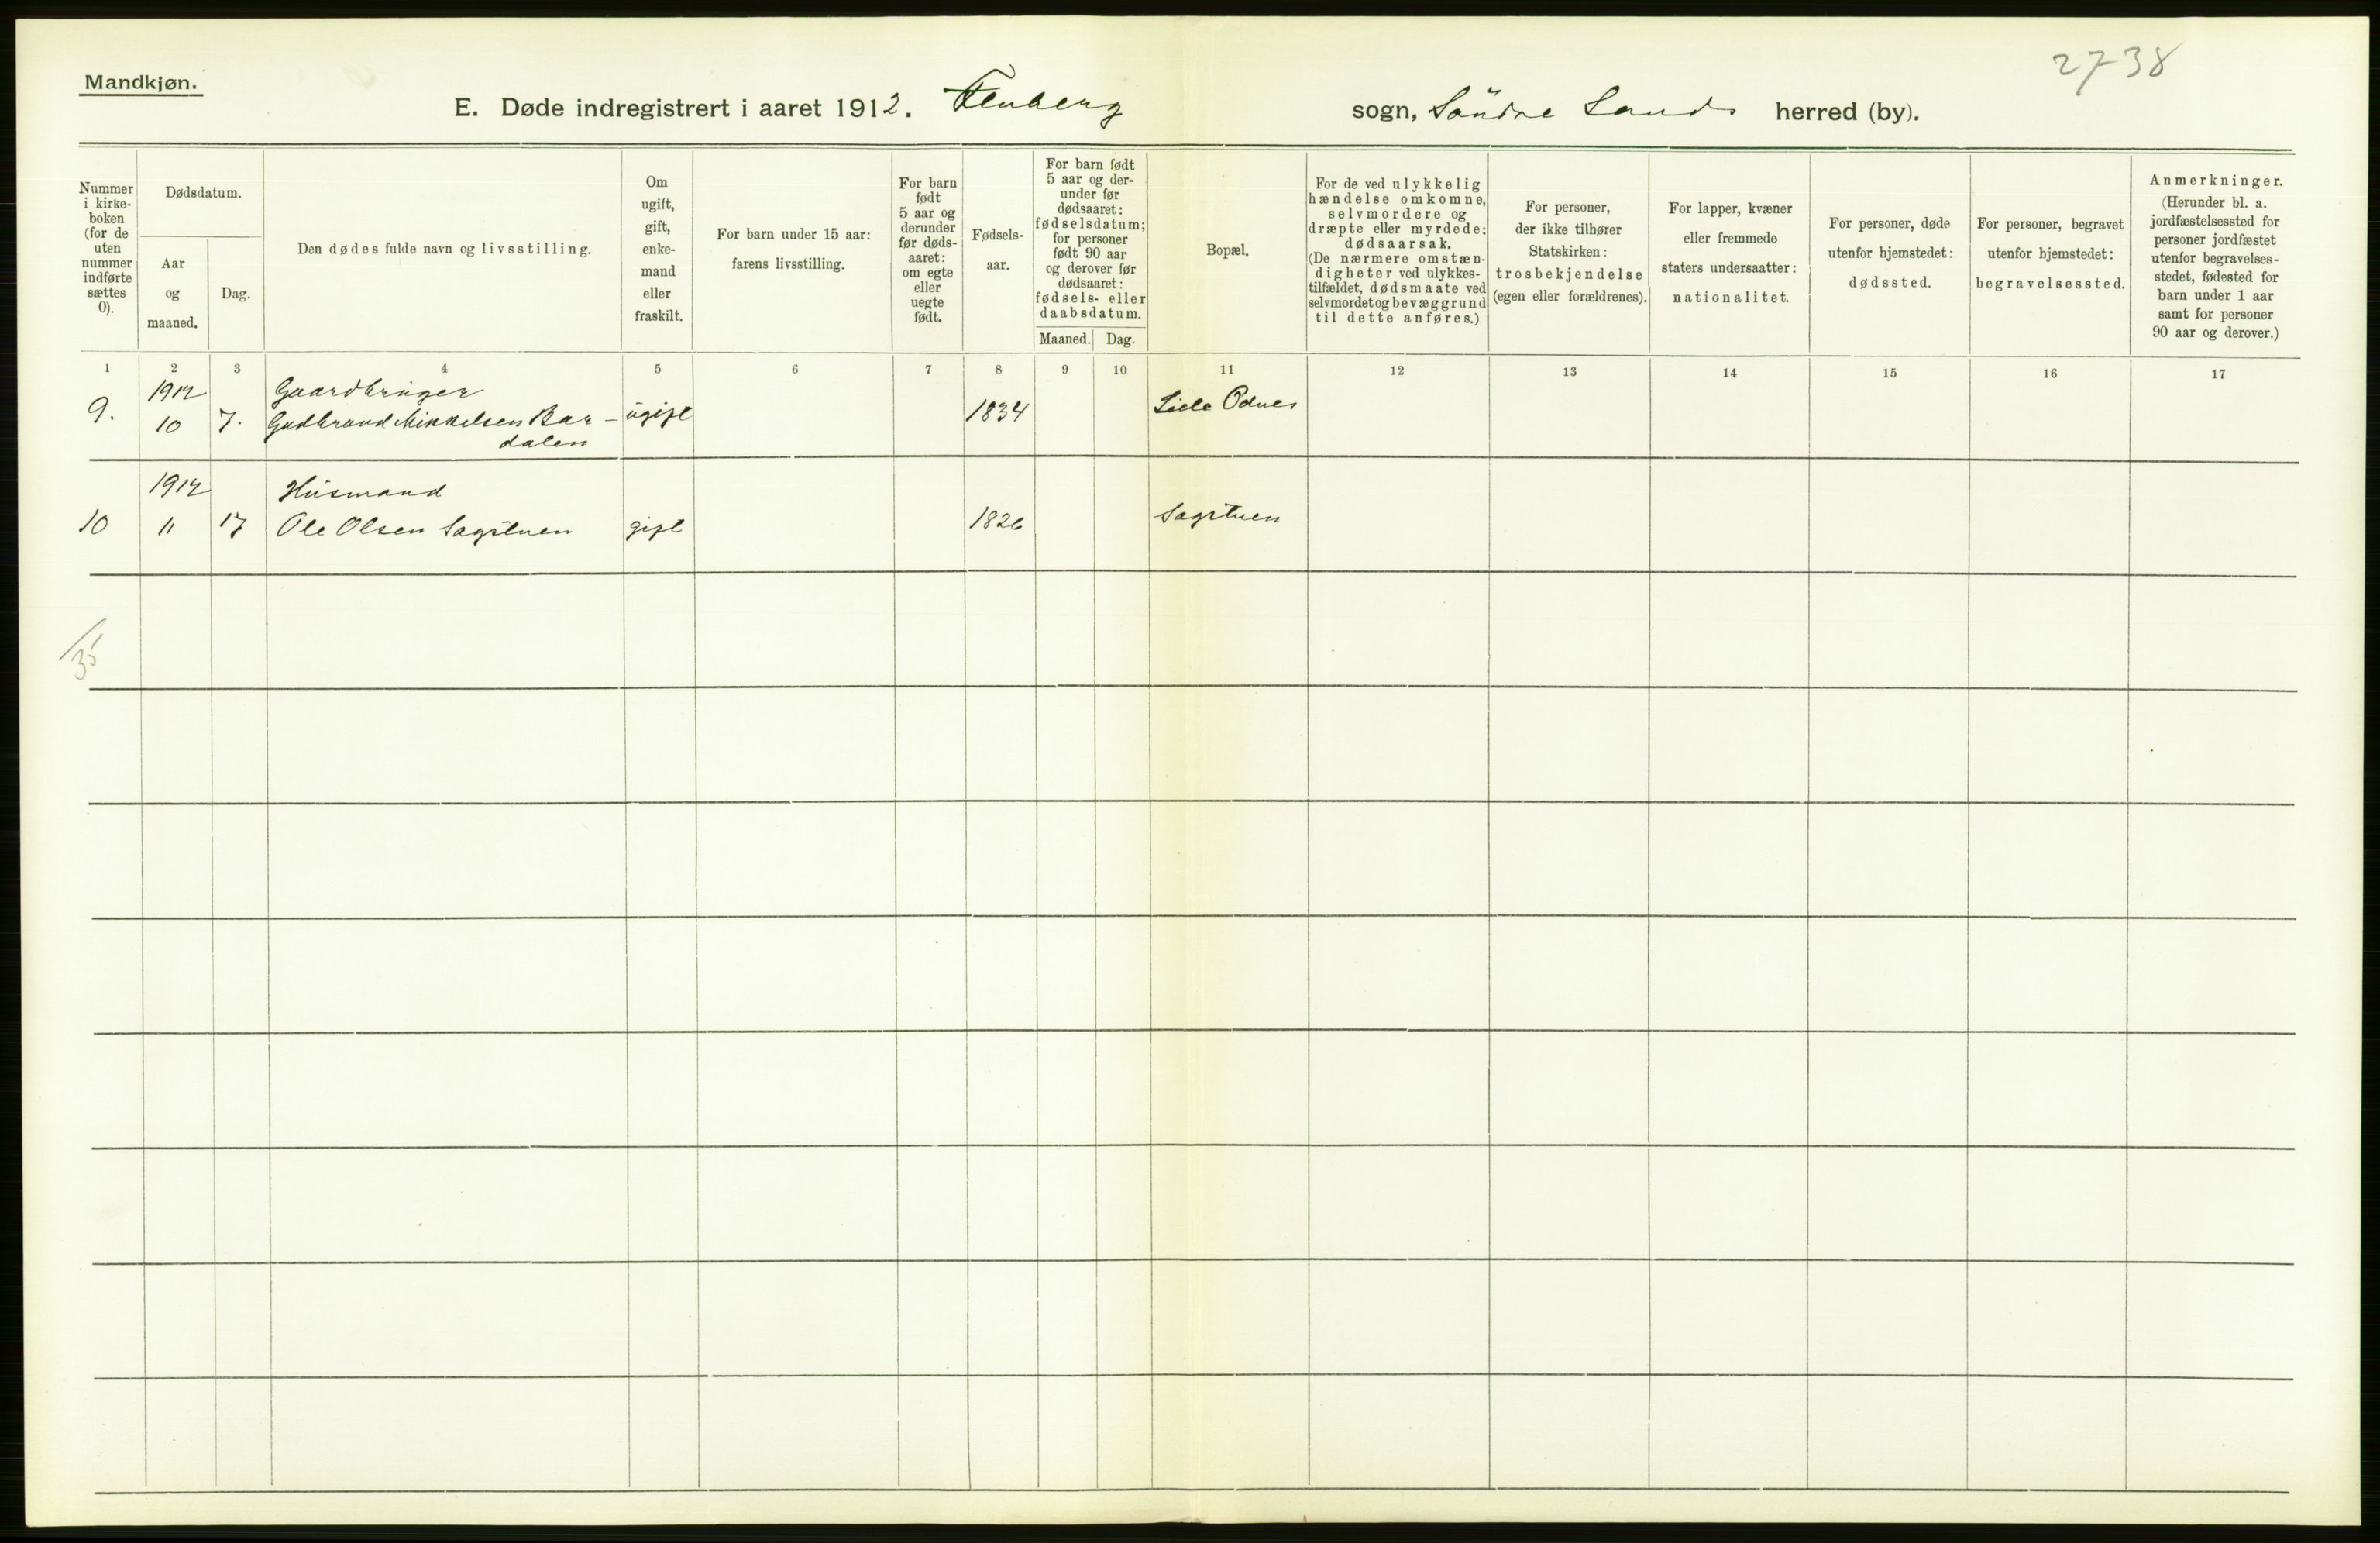 2738
Mandkjøn.
E. Døde indregistrert i aaret 1912. Fluberg sogn, Søndre Lands herred (by).
Nummer i kirke-boken (for de uten nummer indførte sættes 0).
Dødsdatum.
Aar og maaned.
Dag.
Den dødes fulde navn og livsstilling.
Om ugift, gift, enke-mand eller fraskilt.
For barn under 15 aar: farens livsstilling.
For barn født 5 aar og derunder før døds-aaret: om egte eller uegte født.
Fødsels-aar.
For barn født 5 aar og der-under før dødsaaret: fødselsdatum; for personer født 90 aar og derover før dødsaaret: fødsels- eller daabsdatum.
Maaned. Dag.
Bopæl.
For de ved ulykkelig hændelse omkomne, selvmordere og dræpte eller myrdede: dødsaarsak. (De nærmere omstæn-digheter ved ulykkes-tilfældet, dødsmaate ved selvmordet og bevæggrund til dette anføres.)
For personer, der ikke tilhører Statskirken: trosbekjendelse (egen eller forældrenes).
For lapper, kvæner eller fremmede staters undersaatter: nationalitet.
For personer, døde utenfor hjemstedet: dødssted.
For personer, begravet utenfor hjemstedet: begravelsessted.
Anmerkninger. (Herunder bl. a. jordfæstelsessted for personer jordfæstet utenfor begravelses-stedet, fødested for barn under 1 aar samt for personer 90 aar og derover.)
1 2 3 4 5 6 7 8 9 10 11 12 13 14 15 16 17
1912 Gaardbruger
9. 10 7. Gudbrand Mikkelsen Bar- ugift 1834 Lille Odnes
dalen
1912 Husmand
10 11 17 Ole Olsen Sagstuen gift 1826 Sagstuen
35